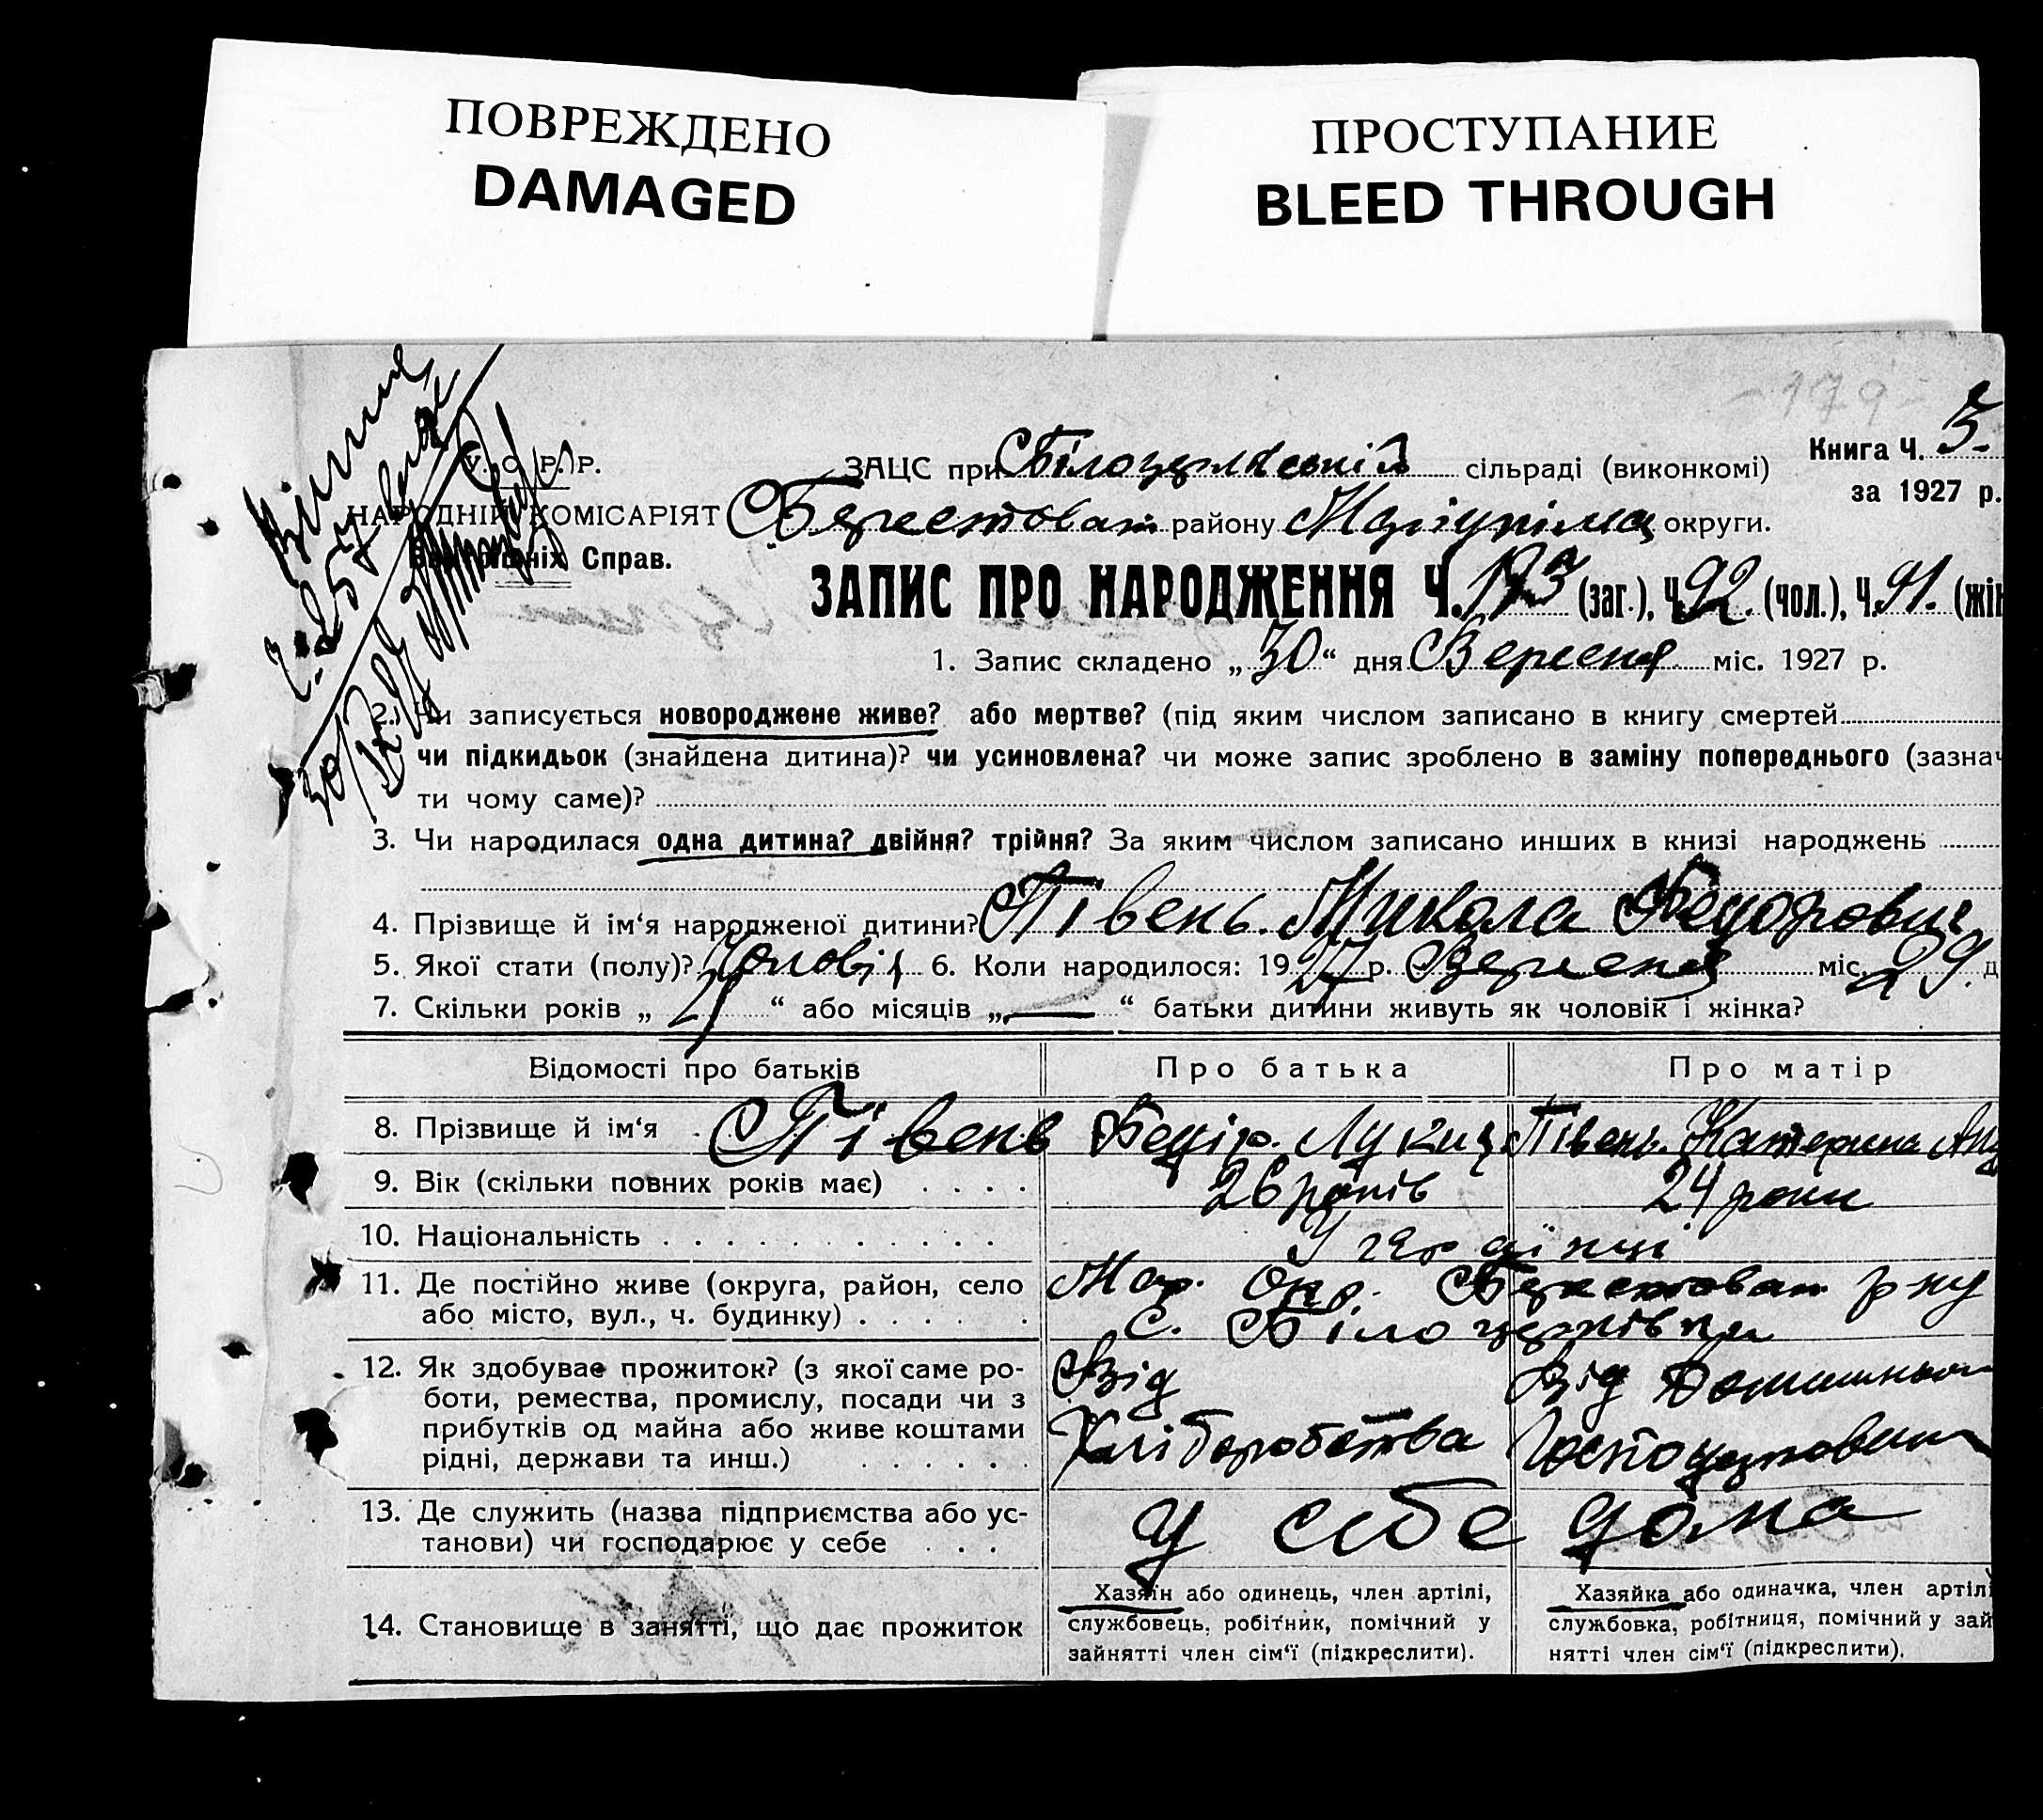 ПОВРЕЖДЕНО
DAMAGED
ПРОСТУПАНИЕ
BLEED THROUGH
-179-
Книга Ч. 3.
за 1927 р.
У. С. Р. Р.
НАРОДНІЙ КОМІСАРІЯТ
Внутрішніх Справ.
ЗАЦС при Білоцерківській сільраді (виконкомі)
Берестоват району Маріупільск округи.
ЗАПИС ПРО НАРОДЖЕННЯ Ч. 173 (заг.), Ч. 92. (чол.), Ч. 91. (жін
1. Запис складено „30“ дня Вересня міс. 1927 р.
2. Чи записується новороджене живе? або мертве? (під яким числом записано в книгу смертей
чи підкидьок (знайдена дитина)? чи усиновлена? чи може запис зроблено в заміну попереднього (зазнач
ти чому саме)?
3. Чи народилася одна дитина? двійня? трійня? За яким числом записано инших в книзі народжень
4. Прізвище й ім‘я народженої дитини? Півень. Микола Федорович
5. Якої стати (полу)? Чоловіч 6. Коли народилося: 1927 р. Вересня міс. 29. д
7. Скільки років „ “ або місяців „—“ батьки дитини живуть як чоловік і жінка?
Відомості про батьків
Про батька
Про матір
8. Прізвище й ім‘я Півень Федір. Лукич. Півень. Катерина Анд
9. Вік (скільки повних років має) 26 років 24 роки
10. Національність Українці
11. Де постійно живе (округа, район, село Мар. Окр. Берестоват р ну
або місто, вул., ч. будинку) с. Білоцерківки
12. Як здобуває прожиток? (з якої саме ро-
боти, ремества, промислу, посади чи з
прибутків од майна або живе коштами
рідні, держави та инш.)
Від
Хліборобства
Від Домашньог
Господарювання
13. Де служить (назва підприємства або ус-
танови) чи господарює у себе
у себе дома
14. Становище в занятті, що дає прожиток
Хазяїн або одинець, член артілі,
службовець, робітник, помічний у
зайнятті член сім‘ї (підкреслити).
Хазяйка або одиначка, член артілі
службовка, робітниця, помічний у зай
нятті член сім‘ї (підкреслити).